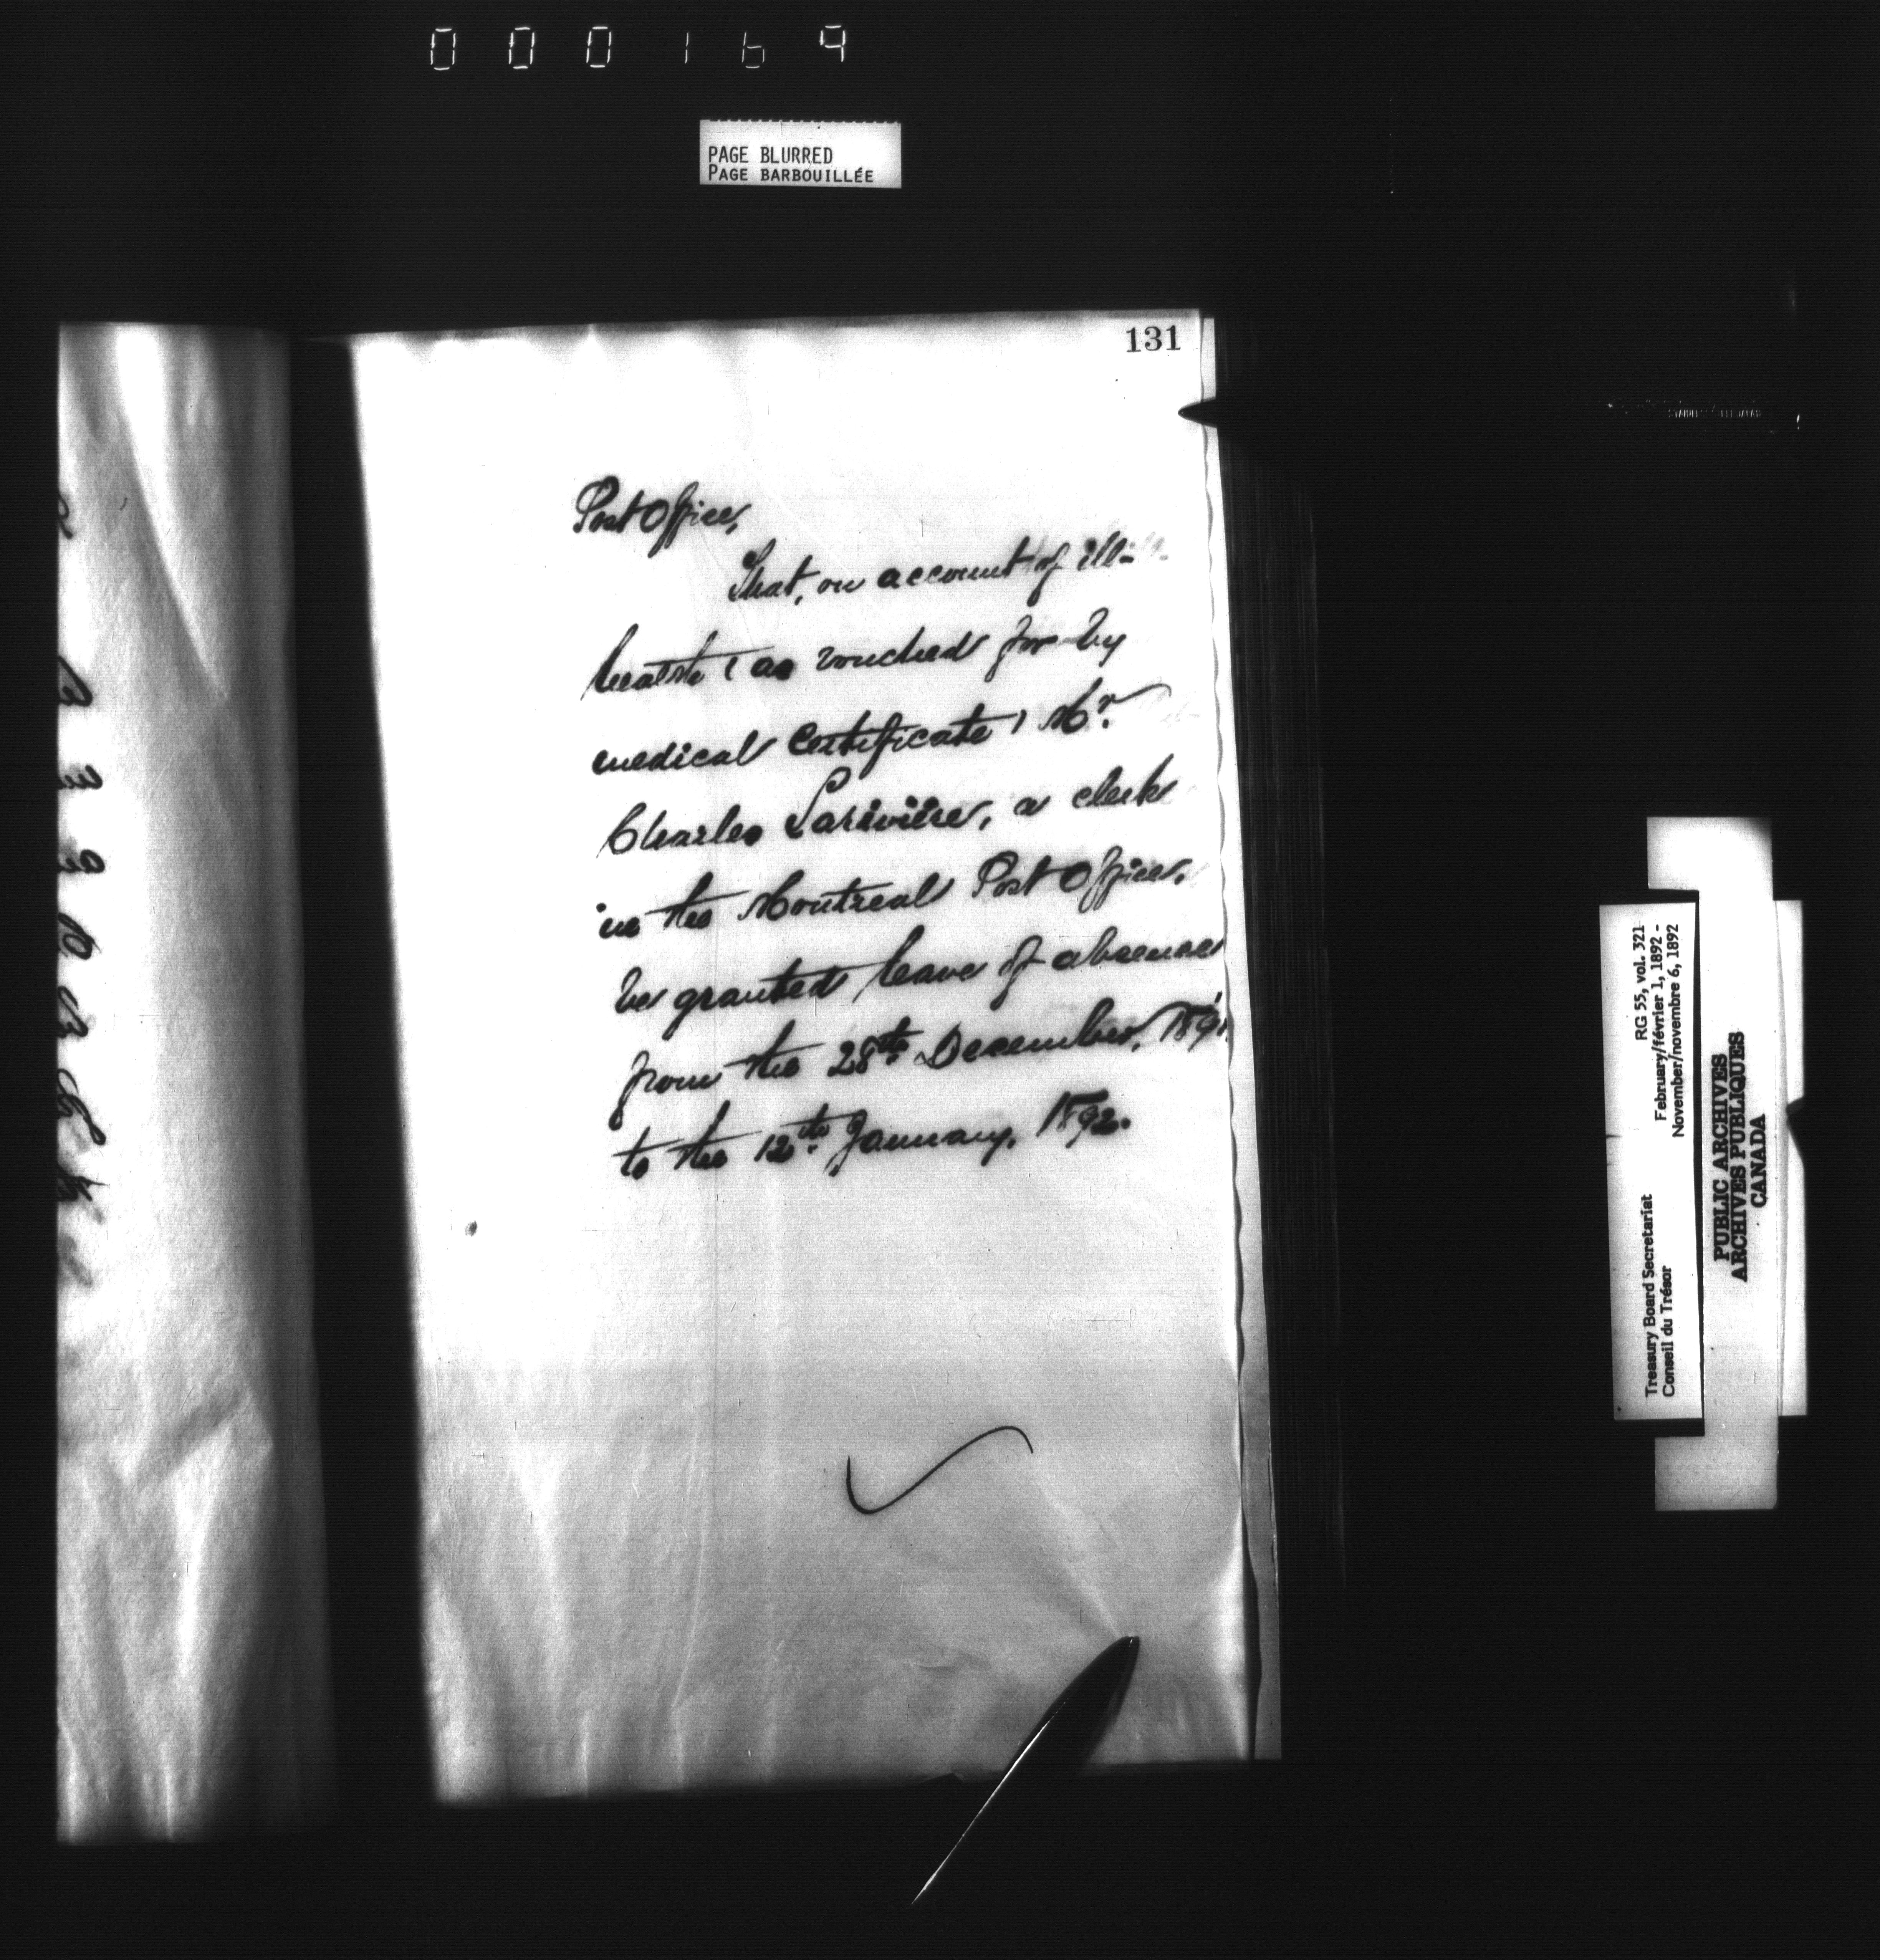 000169
PAGE BLURRED
PAGE BARBOUILLÉE
131
Post Office,
That, on account of ill-
health (as vouched for by
medical certificate) Mr.
Charles Larivière, a clerk
in the Montreal Post Office,
be granted leave of absence
from the 28th December, 1891
to the 12th January, 1892.
Treasury Board Secretariat
Conseil du Trésor
RG 55, vol. 321
February/février 1, 1892 -
November/novembre 6, 1892
PUBLIC ARCHIVES
ARCHIVES PUBLIQUES
CANADA